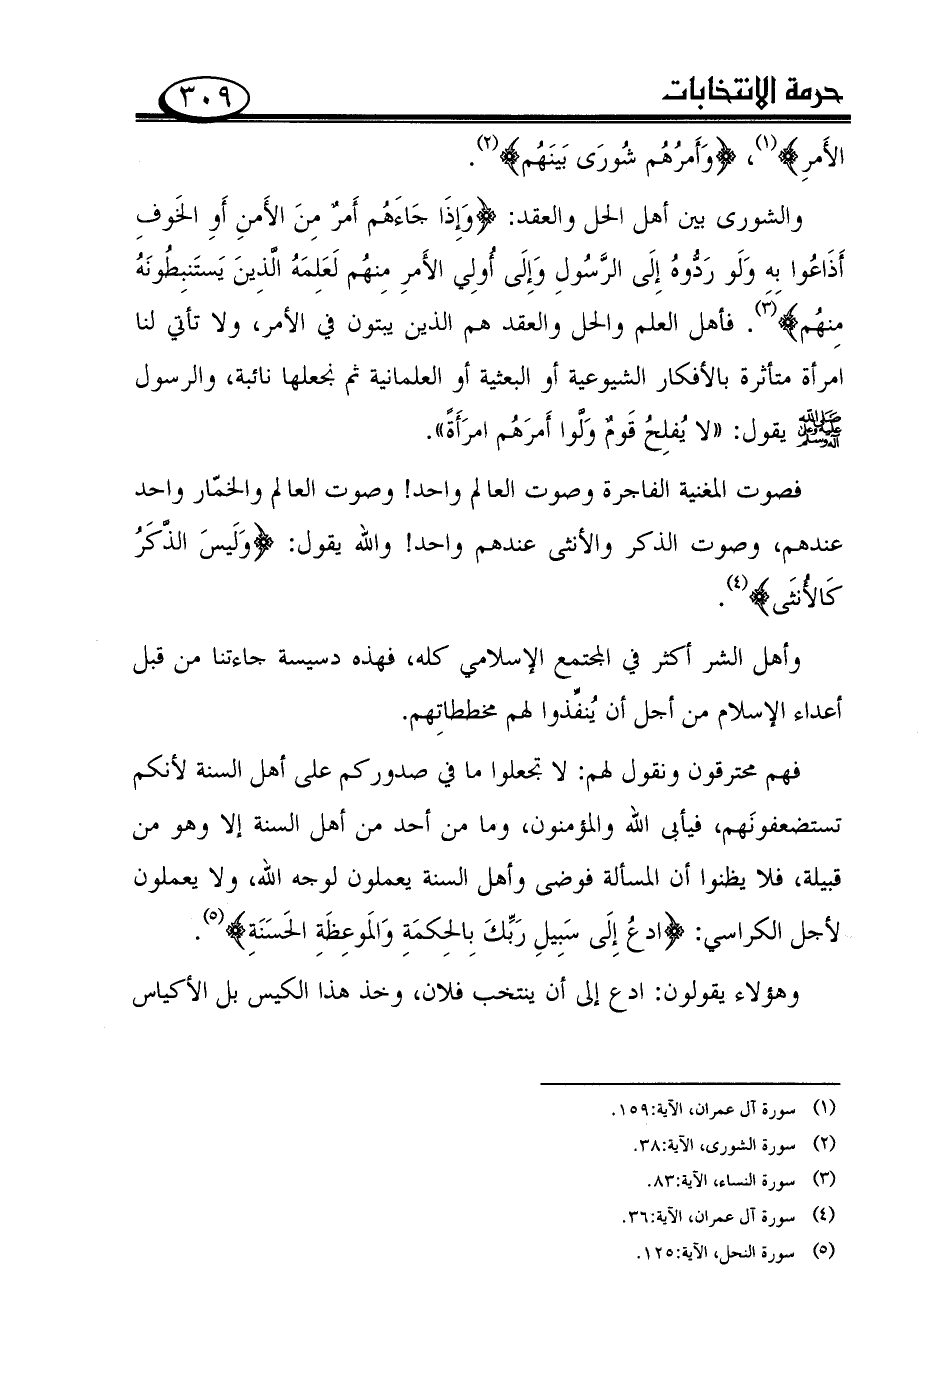 حرمة الانتخابات
٣٠٩
الأَمرِ﴾(١)، ﴿وَأَمرُهُم شُورَى بَينَهُم﴾(٢).
والشورى بين أهل الحل والعقد: ﴿وَإِذَا جَاءَهُم أَمرٌ مِنَ الأَمنِ أَوِ الخَوفِ
أَذَاعُوا بِهِ وَلَو رَدُّوهُ إِلَى الرَّسُولِ وَإِلَى أُولِي الأَمرِ مِنهُم لَعَلِمَهُ الَّذِينَ يَستَنبِطُونَهُ
مِنهُم﴾(٣). فأهل العلم والحل والعقد هم الذين يبتون في الأمر، ولا تأتي لنا
امرأة متأثرة بالأفكار الشيوعية أو البعثية أو العلمانية ثم نجعلها نائبة، والرسول
ﷺ يقول: «لا يُفلِحُ قَومٌ وَلَّوا أَمرَهُم امرَأَةً».
فصوت المغنية الفاجرة وصوت العالم واحد! وصوت العالم والخمّار واحد
عندهم، وصوت الذكر والأنثى عندهم واحد! والله يقول: ﴿وَلَيسَ الذَّكَرُ
كَالأُنثَى﴾(٤).
وأهل الشر أكثر في المجتمع الإسلامي كله، فهذه دسيسة جاءتنا من قبل
أعداء الإسلام من أجل أن يُنفِّذوا لهم مخططاتِهم.
فهم محترقون ونقول لهم: لا تجعلوا ما في صدوركم على أهل السنة لأنكم
تستضعفونَهم، فيأبى الله والمؤمنون، وما من أحد من أهل السنة إلا وهو من
قبيلة، فلا يظنوا أن المسألة فوضى وأهل السنة يعملون لوجه الله، ولا يعملون
لأجل الكراسي: ﴿ادعُ إِلَى سَبِيلِ رَبِّكَ بِالحِكمَةِ وَالمَوعِظَةِ الحَسَنَةِ﴾(٥).
وهؤلاء يقولون: ادع إلى أن ينتخب فلان، وخذ هذا الكيس بل الأكياس
(١) سورة آل عمران، الآية:١٥٩.
(٢) سورة الشورى، الآية:٣٨.
(٣) سورة النساء، الآية:٨٣.
(٤) سورة آل عمران، الآية:٣٦.
(٥) سورة النحل، الآية:١٢٥.